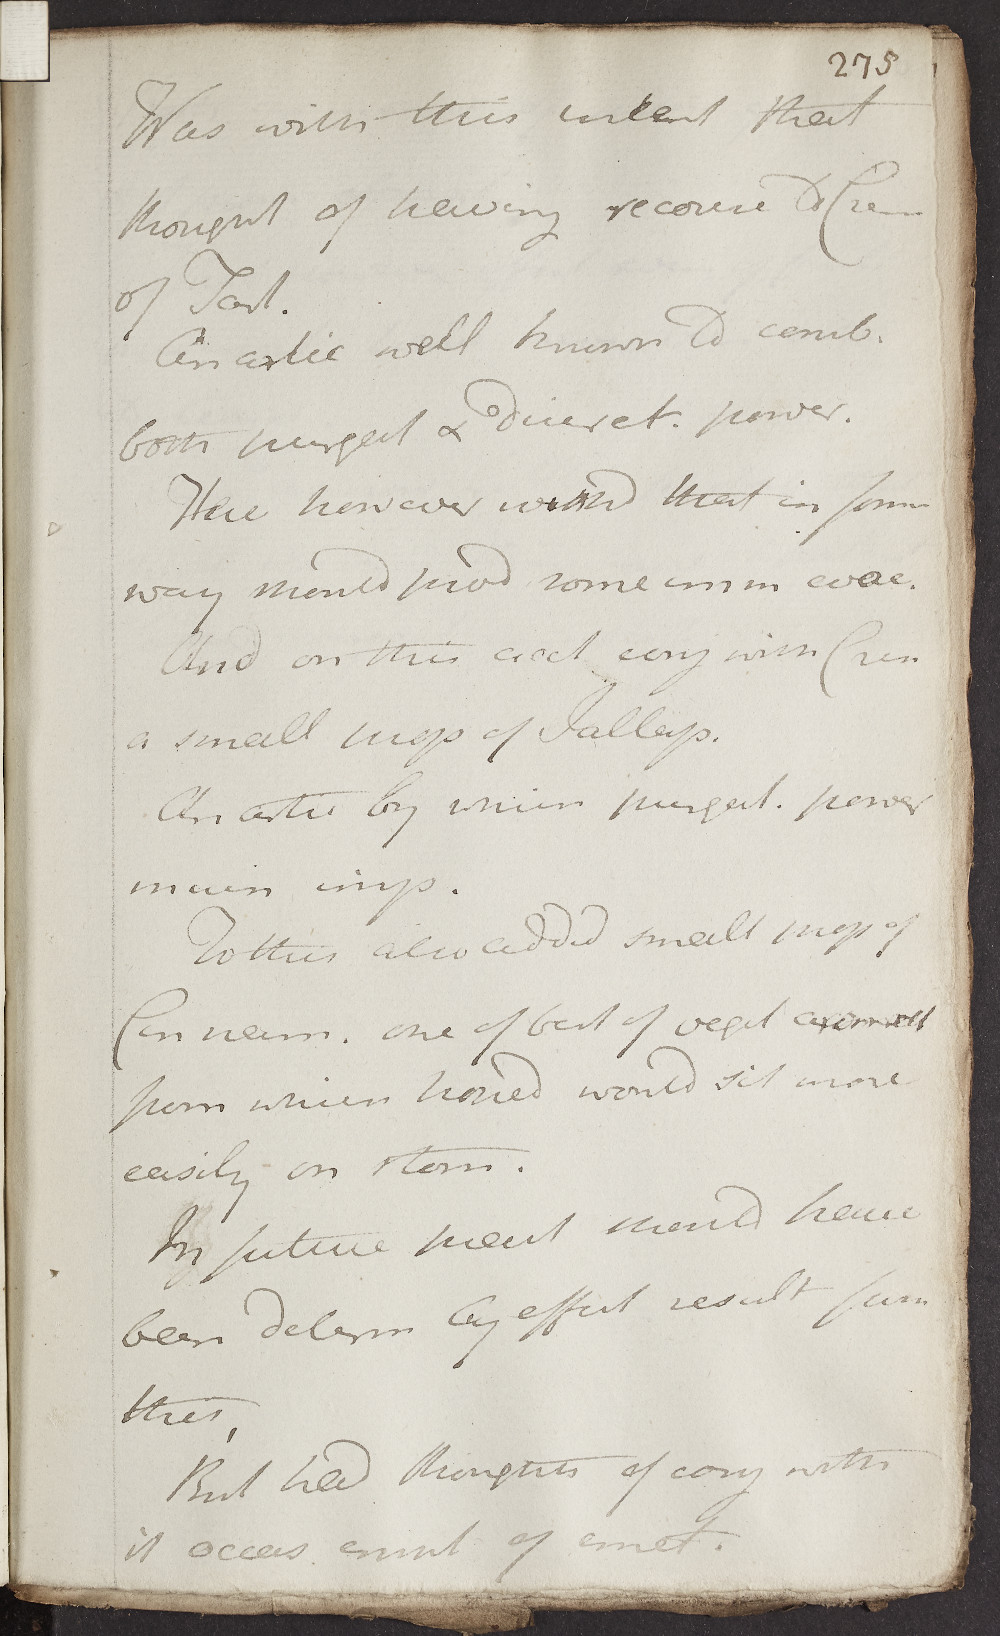 275
Was with this intent that
thought of having recourse to Crem
of Tart.
An artic well known to comb.
both purgat & diuret. power.
Here however wished that in some
way should prod some imm evac.
And on this acct conj with Crem
a small prop of Jallap.
An artic by which purgat. power
much imp.
To this also added small prop of
Cinnam. one of best of veget aromat
from which hoped would sit more
easily on stom.
In future pract should have
been determ by effect result from
this,
But had thoughts of conj with
it occas empl of emet.